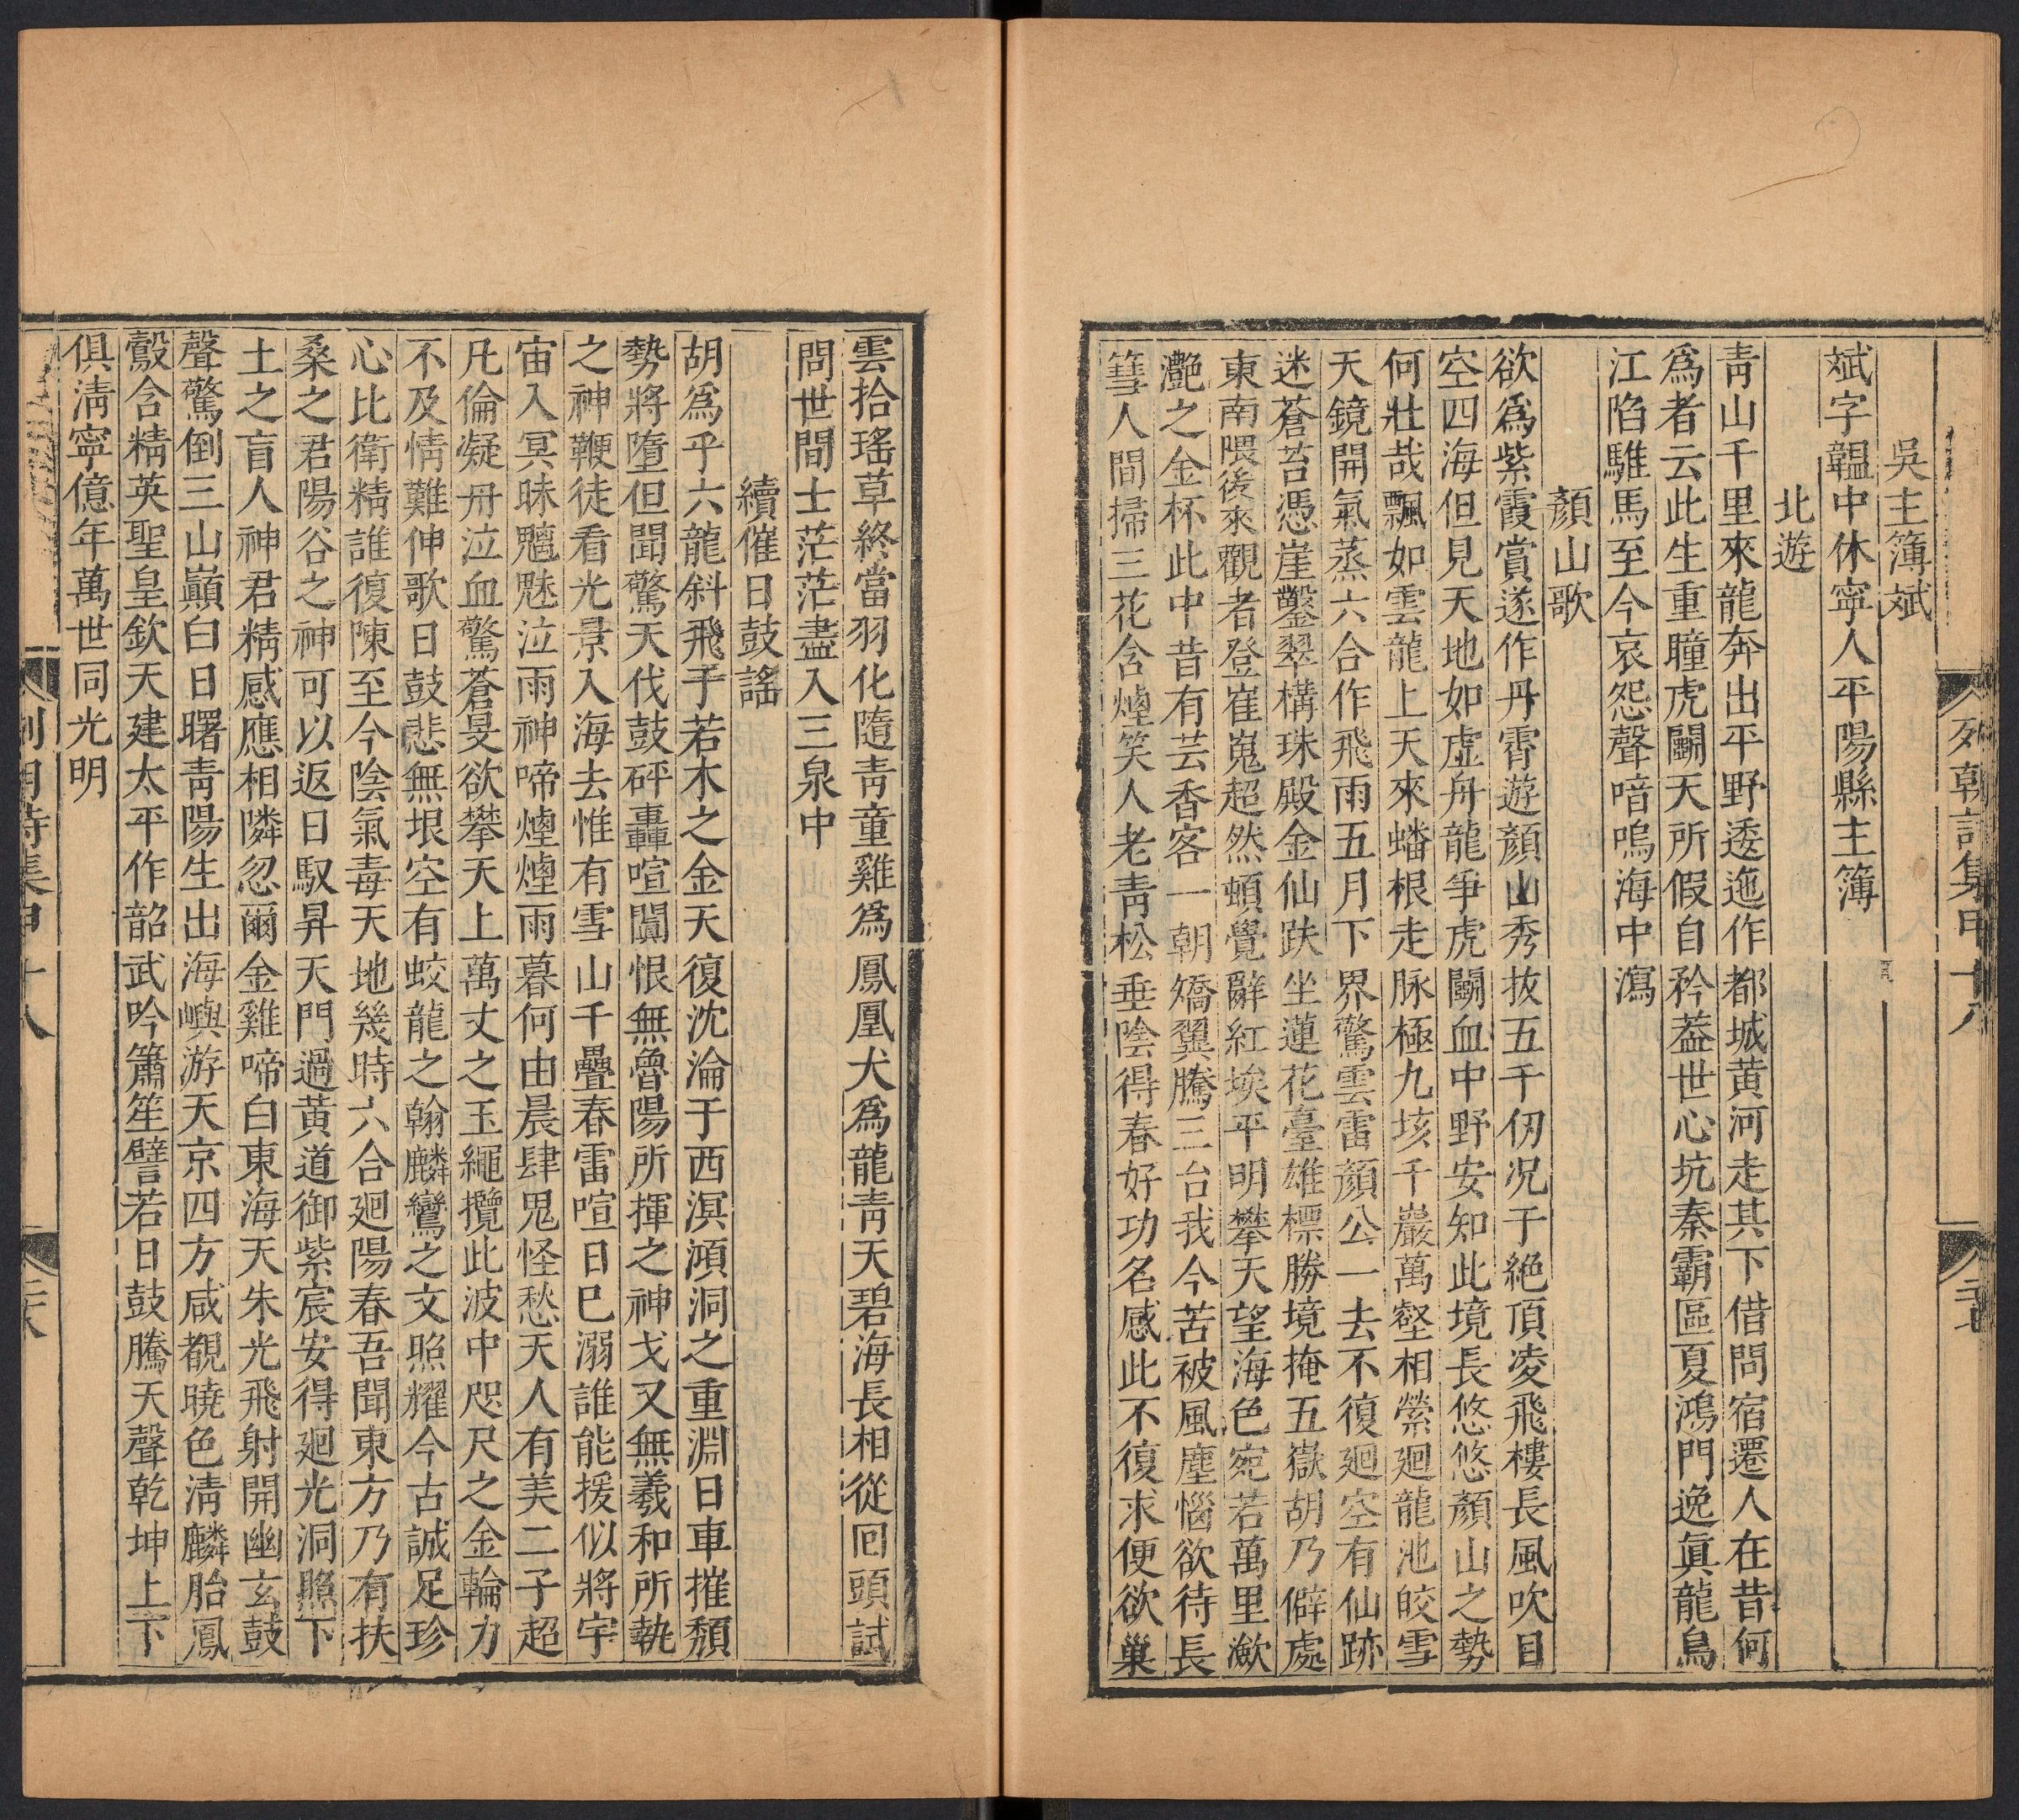 列朝詩集甲十八
吳主簿斌
斌字韞中休寧人平陽縣主簿
北遊
靑山千里來龍奔出平野逶迤作都城黃河走其下借問宿遷人在昔何
爲者云此生重瞳虎鬭天所假自矜葢世心坑秦霸區夏鴻門逸眞龍烏
江陷騅馬至今哀怨聲喑嗚海中瀉
顏山歌
欲爲紫霞賞遂作丹霄遊顏山秀拔五千仞况于絕頂凌飛樓長風吹目
空四海但見天地如虛舟龍爭虎鬭血中野安知此境長悠悠顏山之勢
何壯哉飄如雲龍上天來蟠根走脉極九垓千巖萬壑相縈廻龍池皎雪
天鏡開氣蒸六合作飛雨五月下界驚雲雷顏公一去不復廻空有仙跡
迷蒼苔憑崖鑿翠構珠殿金仙趺坐蓮花臺雄標勝境掩五嶽胡乃僻處
東南隈後來觀者登崔嵬超然頓覺辭紅埃平明攀天望海色宛若萬里瀲
灧之金杯此中昔有芸香客一朝矯翼騰三台我今苦被風塵惱欲待長
篲人間掃三花含煙笑人老靑松垂陰得春好功名感此不復求便欲巢
雲拾瑤草終當羽化隨靑童雞爲鳳凰犬爲龍靑天碧海長相從囘頭試
問世間士茫茫盡入三泉中
續催日鼓謠
胡爲乎六龍斜飛手若木之金天復沈淪于西溟澒洞之重淵日車摧頹
勢將墮但聞驚天伐鼓砰轟喧闐恨無魯陽所揮之神戈又無羲和所執
之神鞭徒看光景入海去惟有雪山千疊春雷喧日巳溺誰能援似將宇
宙入冥昧魑魅泣雨神啼煙煙雨暮何由晨肆鬼怪愁天人有美二子超
凡倫凝冊泣血驚蒼旻欲攀天上萬丈之玉繩攬此波中咫尺之金輪力
不及情難伸歌日鼓悲無垠空有蛟龍之翰麟鸞之文照耀今古誠足珍
心比衛精誰復陳至今陰氣毒天地幾時六合廻陽春吾聞東方乃有扶
桑之君陽谷之神可以返日馭昇天門過黃道御紫宸安得廻光洞照下
土之盲人神君精感應相隣忽爾金雞啼白東海天朱光飛射開幽玄鼓
聲驚倒三山巔白日曙靑陽生出海嶼游天京四方咸覩曉色淸麟胎鳳
鷇含精英聖皇欽天建太平作韶武吟簫笙譬若日鼓騰天聲乾坤上下
俱淸寧億年萬世同光明